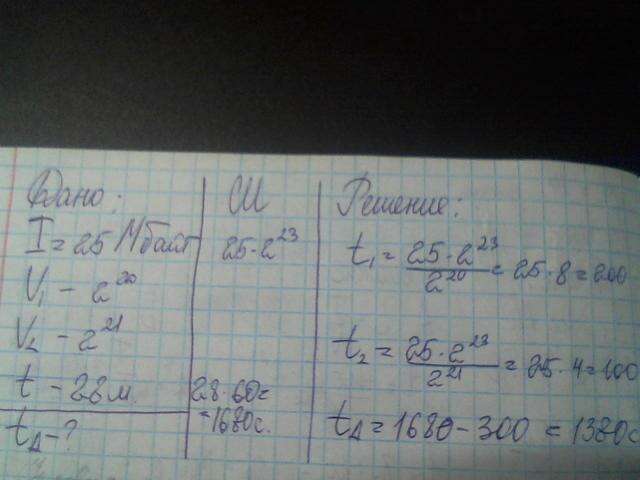 Дано:
I = 25 Мбайт
V₁ - 2²⁰
V₂ - 2²¹
t - 28 м.
t_д - ?
СИ
25·2²³
28·60=
=1680с.
Решение:
t₁ = 25·2²³ / 2²⁰ = 25·8 = 200
t₂ = 25·2²³ / 2²¹ = 25·4 = 100
t_д = 1680 - 300 = 1380с